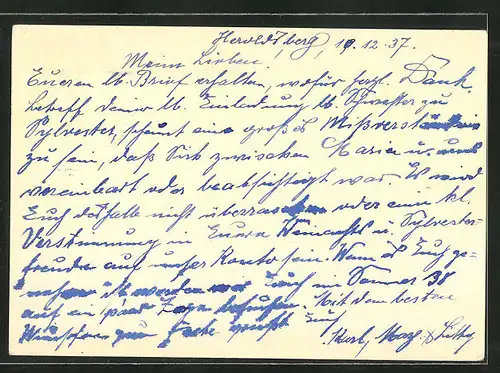 Heroldsberg, 19.12.37.
Meine Lieben!
Eueren lb. Brief erhalten, wofür herzl. Dank.
Betreff deiner lb. Einladung lb. Schwester zu
Sylvester, scheint ein großes Mißverständnis
zu sein, daß Sich zwischen Maria u. uns
vereinbart oder beabsichtigt war.
Euch deshalb nicht überraschen oder eine kl.
Verstimmung in Euere Weinachts u. Sylvester
freuden auf unser Konto sein. Wann es Euch ge-
nehm ist werden wir Euch im Januar 38
auf ein paar Tage besuchen. Mit den besten
Wünschen zum Feste grüßt Euch
Karl, Marg. &